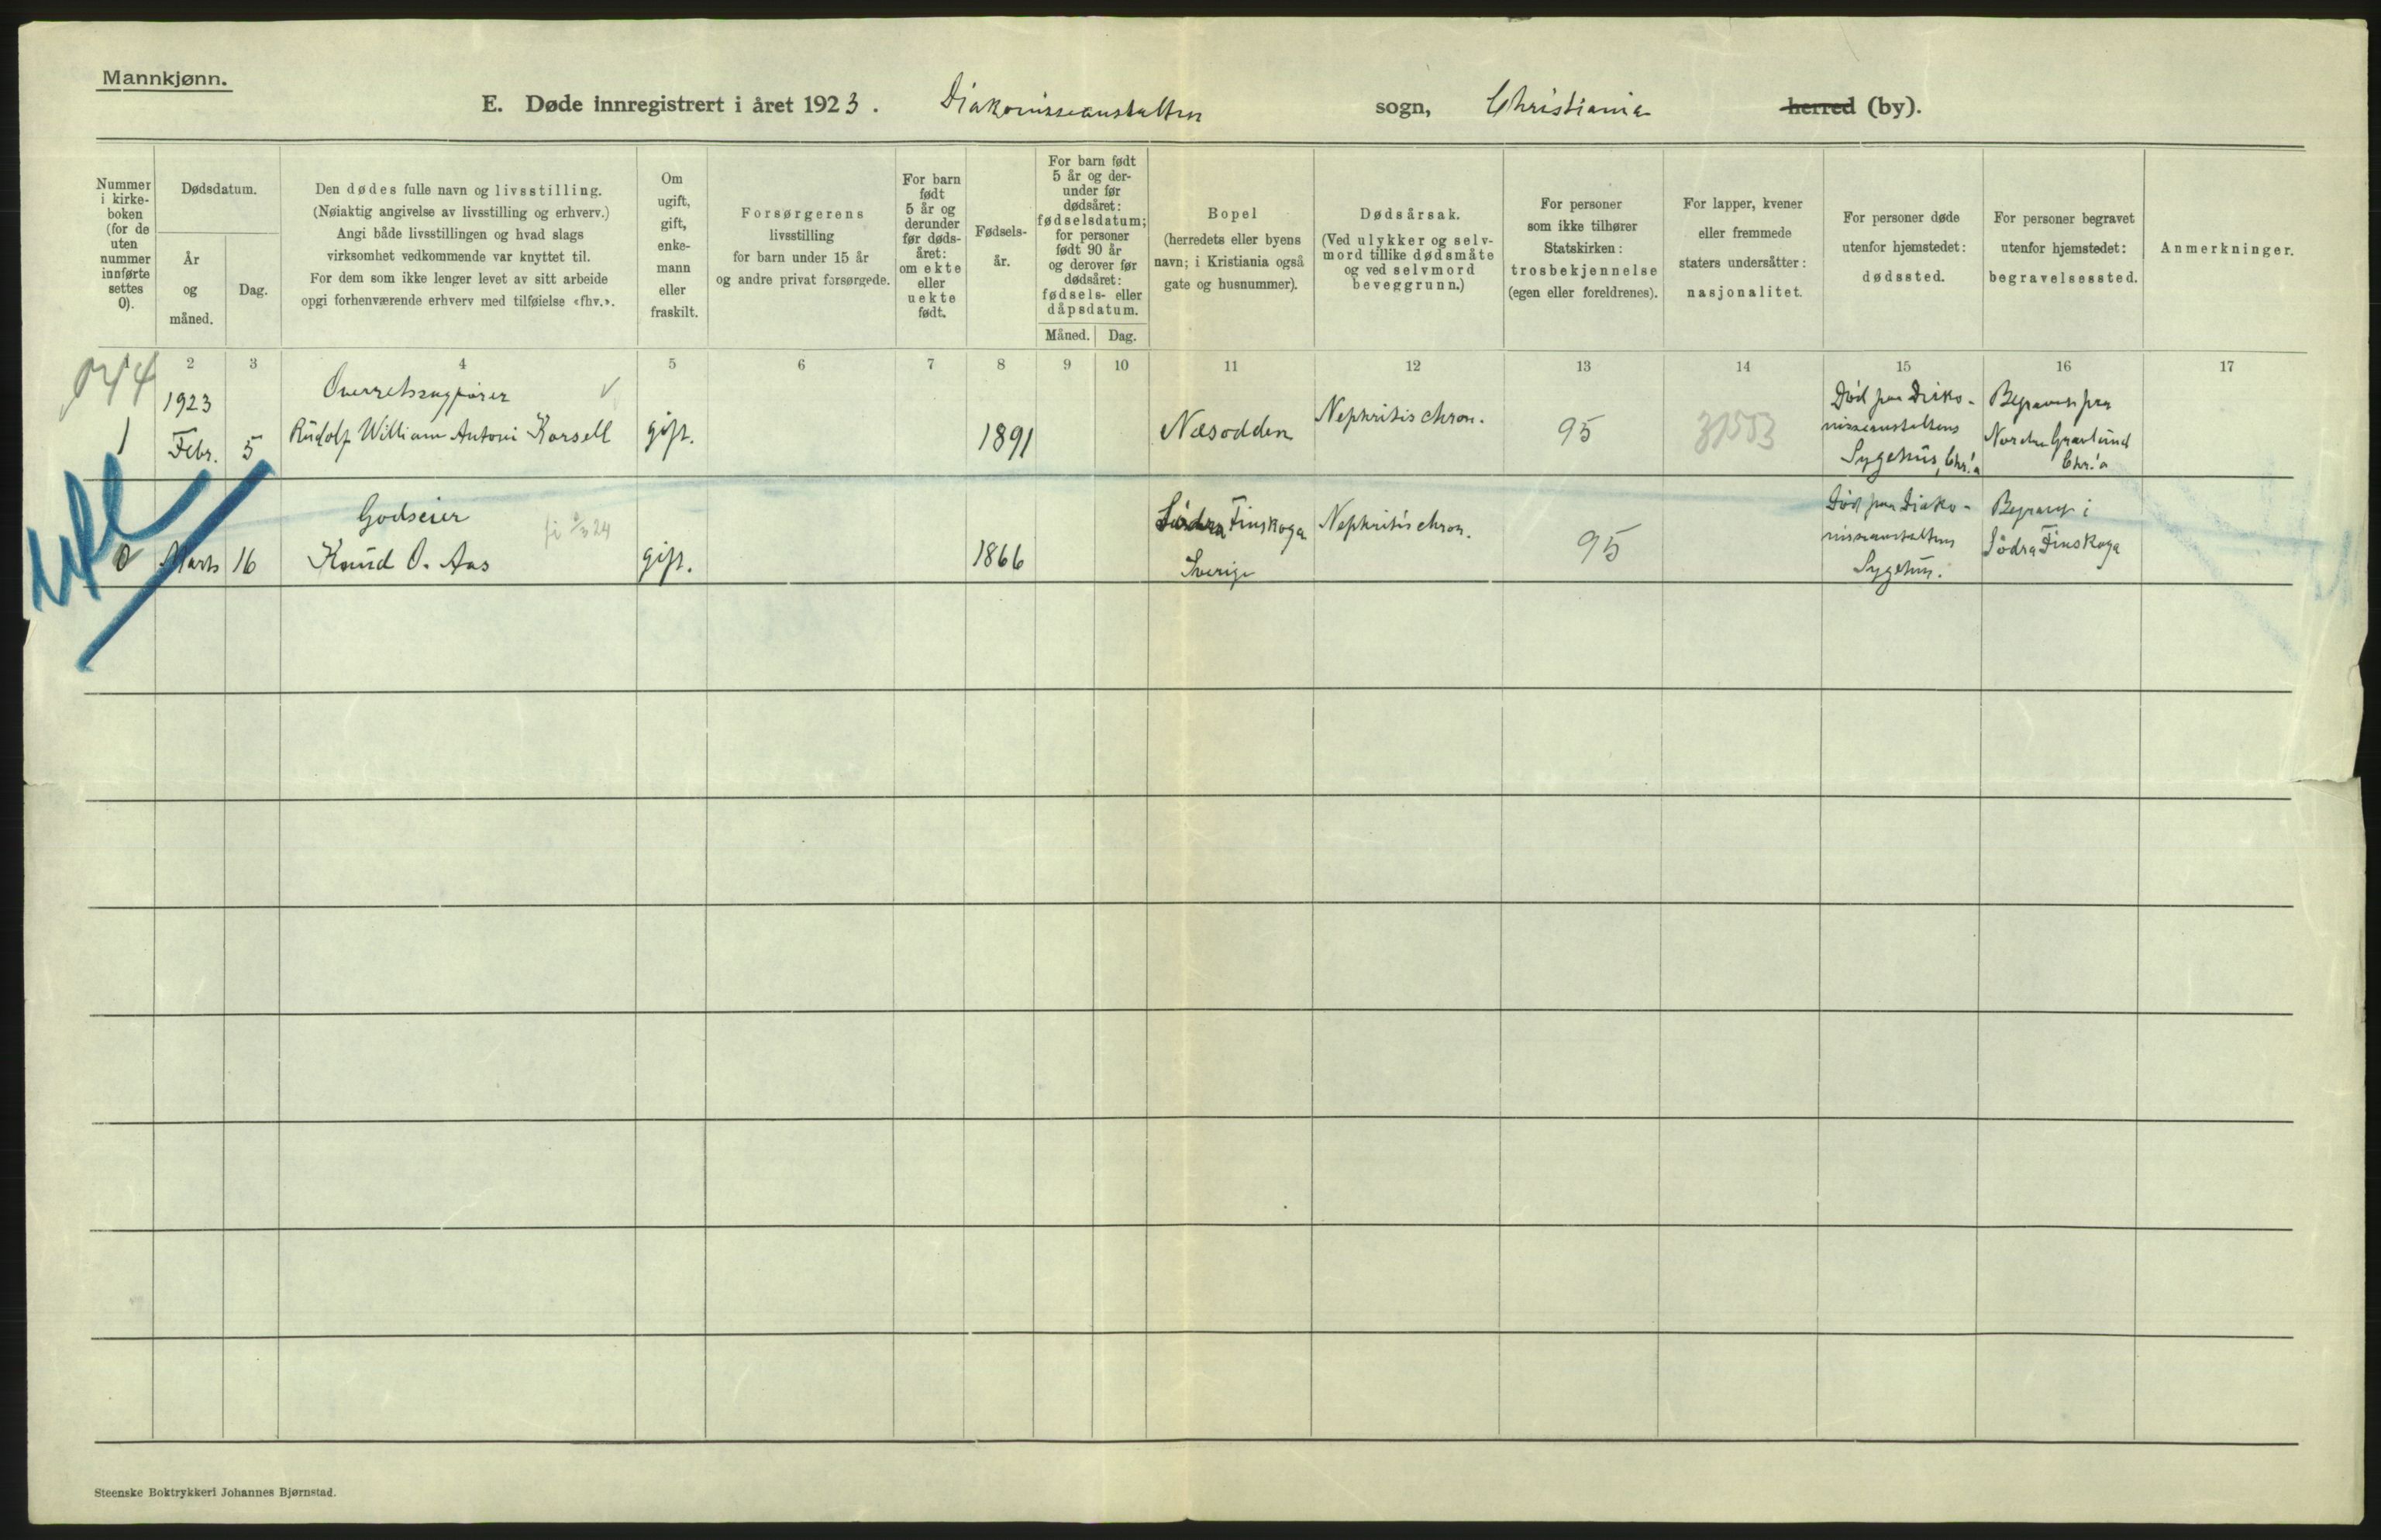 Mannkjønn.
E. Døde innregistrert i året 1923. Diakonisseanstalten sogn, Christiania herred (by).
Nummer
i kirke-
boken
(for de
uten
nummer
innførte
settes
0).
Dødsdatum.
År
og
måned.
Dag.
Den dødes fulle navn og livsstilling.
(Nøiaktig angivelse av livsstilling og erhverv.)
Angi både livsstillingen og hvad slags
virksomhet vedkommende var knyttet til.
For dem som ikke lenger levet av sitt arbeide
opgi forhenværende erhverv med tilføielse «fhv.».
Om
ugift,
gift,
enke-
mann
eller
fraskilt.
Forsørgerens
livsstilling
for barn under 15 år
og andre privat forsørgede.
For barn
født
5 år og
derunder
før døds-
året:
om ekte
eller
uekte
født.
Fødsels-
år.
For barn født
5 år og der-
under før
dødsåret:
fødselsdatum;
for personer
født 90 år
og derover før
dødsåret:
fødsels- eller
dåpsdatum.
Måned.
Dag.
Bopel
(herredets eller byens
navn; i Kristiania også
gate og husnummer).
Dødsårsak.
(Ved ulykker og selv-
mord tillike dødsmåte
og ved selvmord
beveggrunn.)
For personer
som ikke tilhører
Statskirken:
trosbekjennelse
(egen eller foreldrenes).
For lapper, kvener
eller fremmede
staters undersåtter:
nasjonalitet.
For personer døde
utenfor hjemstedet:
dødssted.
For personer begravet
utenfor hjemstedet:
begravelsessted.
Anmerkninger.
1 2 3 4 5 6 7 8 9 10 11 12 13 14 15 16 17
1
1923
Febr.
5
Overretssagfører
Rudolf William Antoni Korsell
gift.
1891
Næsodden
Nephritis chron.
95
Død paa Diako-
nisseanstaltens
Sygehus, Chr.a
Begravet paa
Nordre Gravlund
Chr.a
0
Marts
16
Godseier
Knud O. Aas
gift.
1866
Södra Finskoga
Sverige
Nephritis chron.
95
Død paa Diako-
nisseanstaltens
Sygehus.
Begravet i
Södra Finskoga
Steenske Boktrykkeri Johannes Bjørnstad.